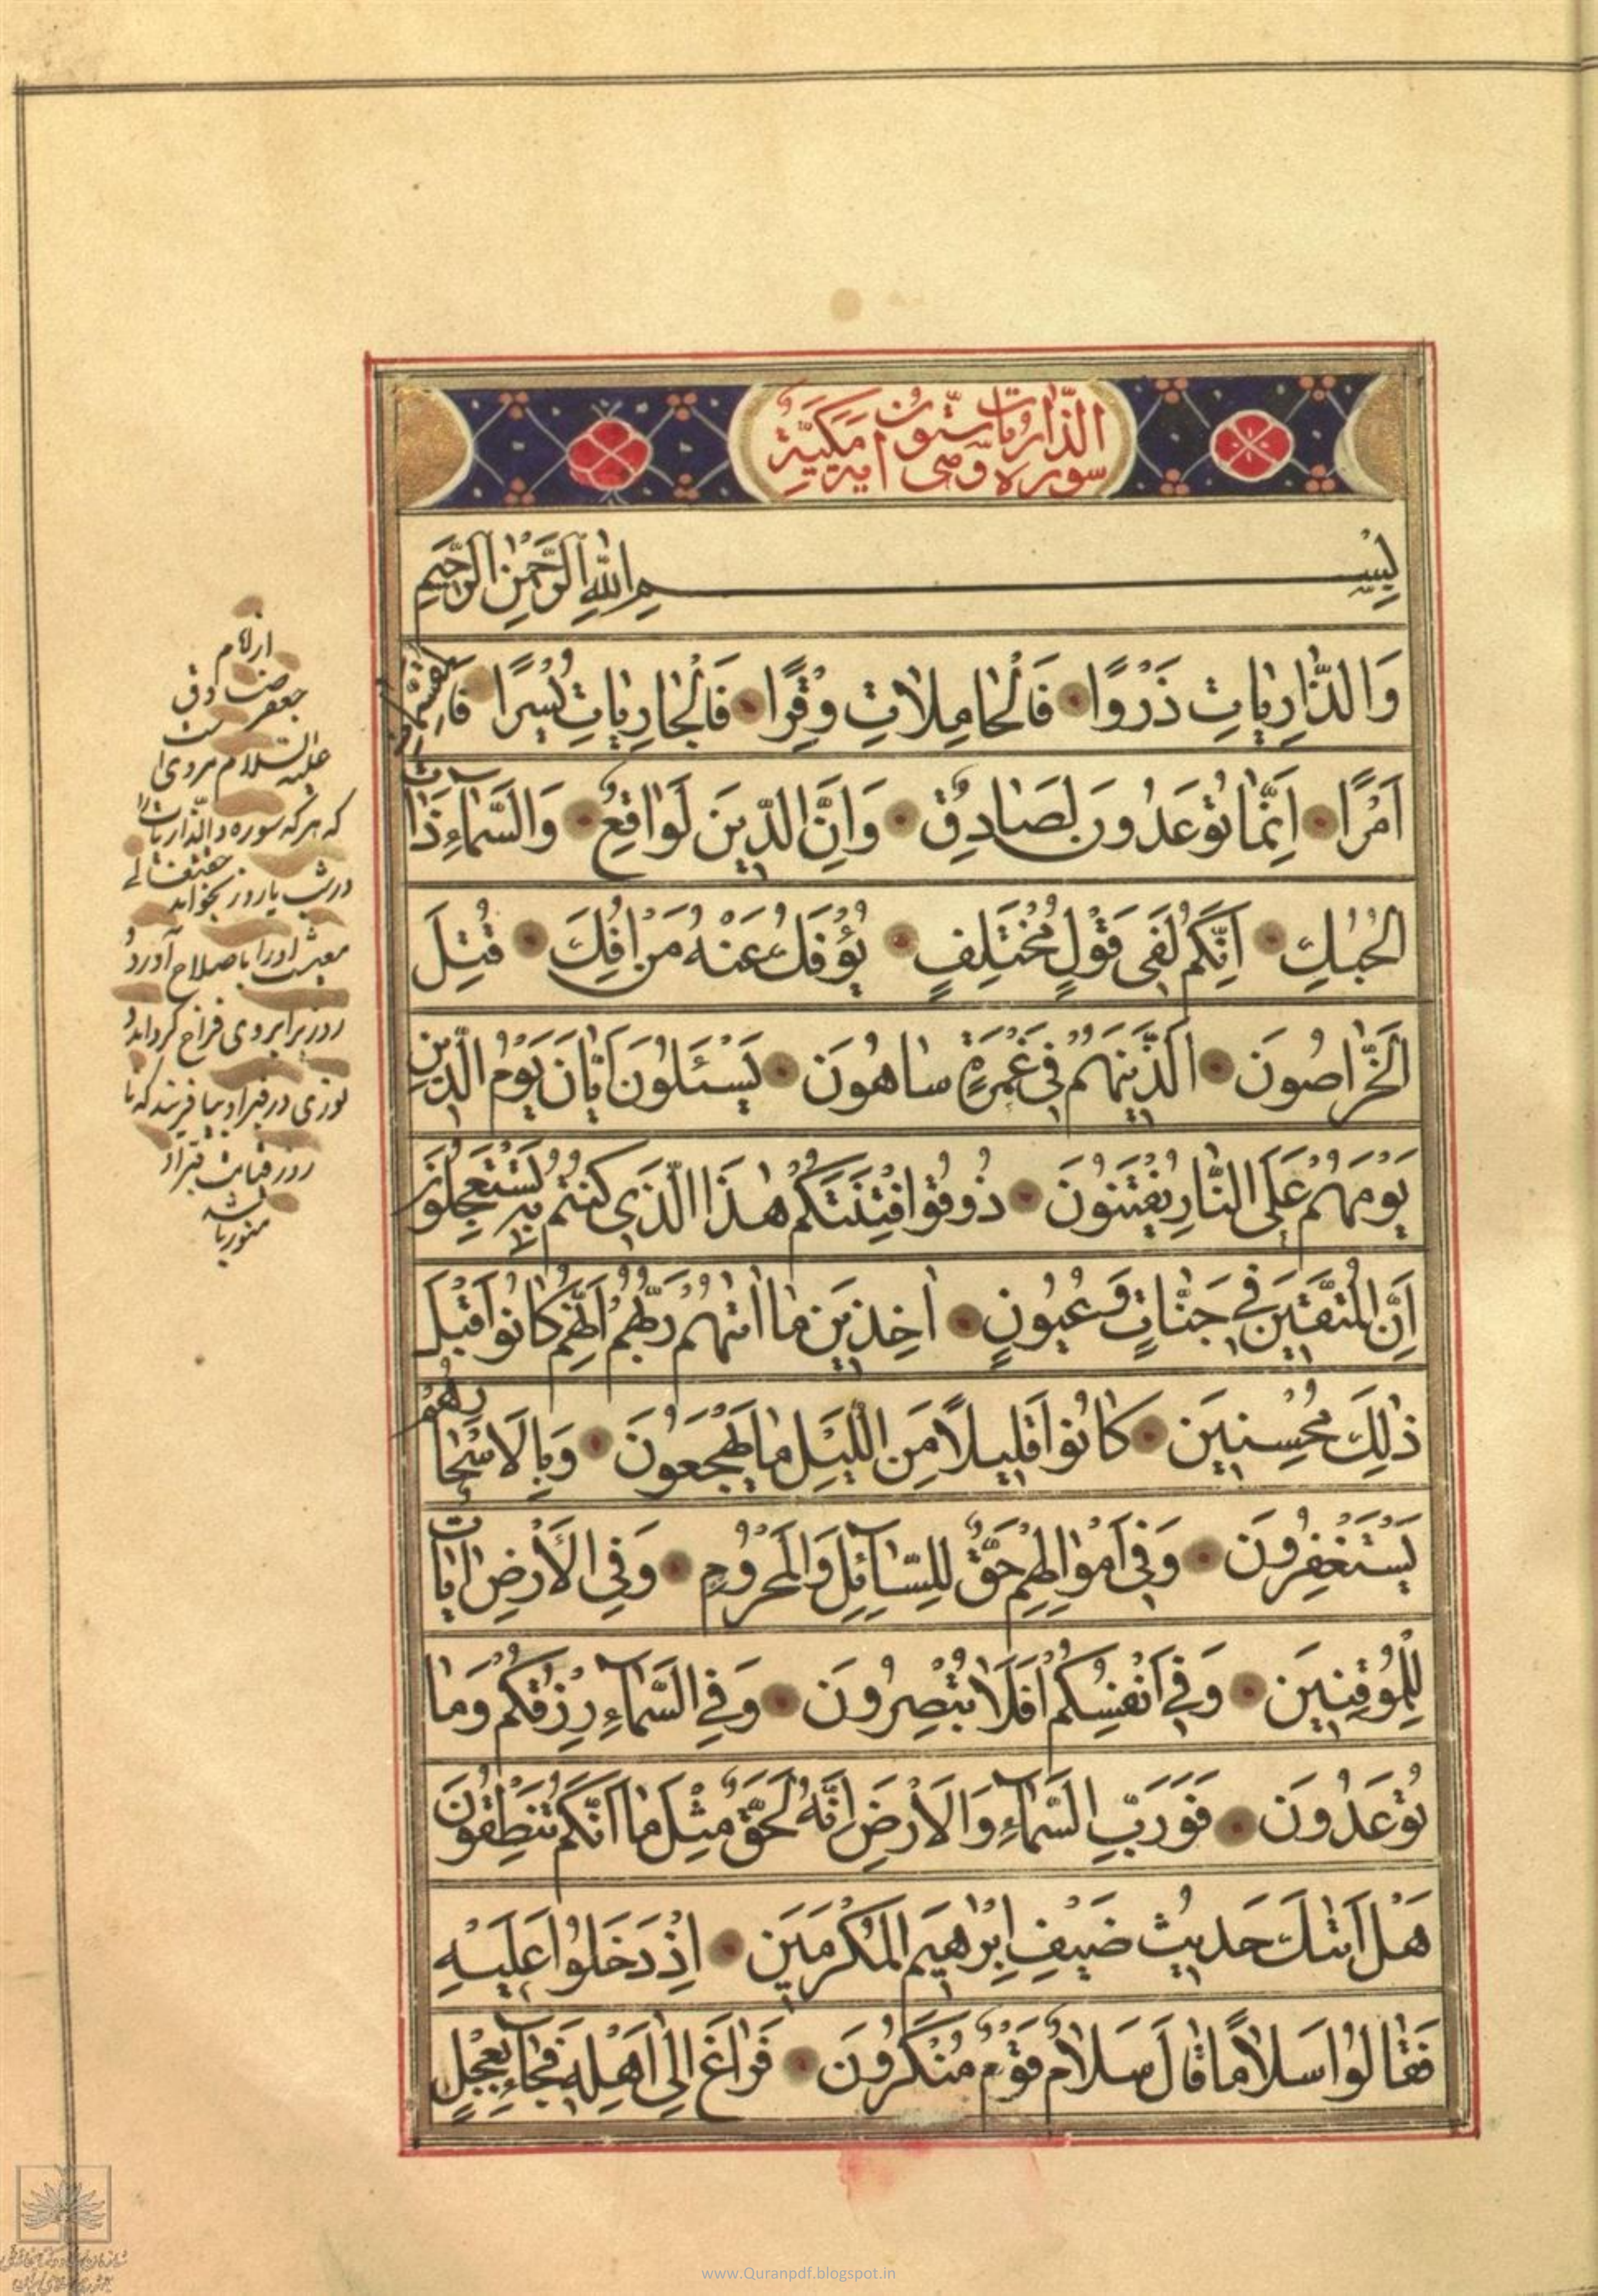 سورة والذاريات ستون اية مكية
بِسْمِ اللهِ الرَّحْمٰنِ الرَّحِيمِ
وَالذَّارِيَاتِ ذَرْوًا فَالْحَامِلَاتِ وِقْرًا فَالْجَارِيَاتِ يُسْرًا فَالْمُقَسِّمَاتِ
اَمْرًا اِنَّمَا تُوعَدُونَ لَصَادِقٌ وَاِنَّ الدِّينَ لَوَاقِعٌ وَالسَّمَآءِ ذَاتِ
الْحُبُكِ اِنَّكُمْ لَفِي قَوْلٍ مُخْتَلِفٍ يُؤْفَكُ عَنْهُ مَنْ اُفِكَ قُتِلَ
الْخَرَّاصُونَ اَلَّذِينَ هُمْ فِي غَمْرَةٍ سَاهُونَ يَسْئَلُونَ اَيَّانَ يَوْمُ الدِّينِ
يَوْمَ هُمْ عَلَى النَّارِ يُفْتَنُونَ ذُوقُوا فِتْنَتَكُمْ هٰذَا الَّذِي كُنْتُمْ بِهِ تَسْتَعْجِلُونَ
اِنَّ الْمُتَّقِينَ فِي جَنَّاتٍ وَعُيُونٍ اٰخِذِينَ مَا اٰتٰهُمْ رَبُّهُمْ اِنَّهُمْ كَانُوا قَبْلَ
ذٰلِكَ مُحْسِنِينَ كَانُوا قَلِيلًا مِنَ اللَّيْلِ مَا يَهْجَعُونَ وَبِالْاَسْحَارِ هُمْ
يَسْتَغْفِرُونَ وَفِي اَمْوَالِهِمْ حَقٌّ لِلسَّآئِلِ وَالْمَحْرُومِ وَفِي الْاَرْضِ اٰيَاتٌ
لِلْمُوقِنِينَ وَفِي اَنْفُسِكُمْ اَفَلَا تُبْصِرُونَ وَفِي السَّمَآءِ رِزْقُكُمْ وَمَا
تُوعَدُونَ فَوَرَبِّ السَّمَآءِ وَالْاَرْضِ اِنَّهُ لَحَقٌّ مِثْلَ مَا اَنَّكُمْ تَنْطِقُونَ
هَلْ اَتٰكَ حَدِيثُ ضَيْفِ اِبْرٰهِيمَ الْمُكْرَمِينَ اِذْ دَخَلُوا عَلَيْهِ
فَقَالُوا سَلَامًا قَالَ سَلَامٌ قَوْمٌ مُنْكَرُونَ فَرَاغَ اِلٰى اَهْلِهِ فَجَآءَ بِعِجْلٍ
از امام
جعفر صادق
عليه السلام مروى
كه هر كه سوره والذاريات را
در شب يا روز بخواند حقتعالى
معيشت او را باصلاح آورد و
روزى بر وى فراخ كرداند و
نورى در قبر او بيافريند كه تا
روز قيامت قبر او
منور باشد
www.Quranpdf.blogspot.in